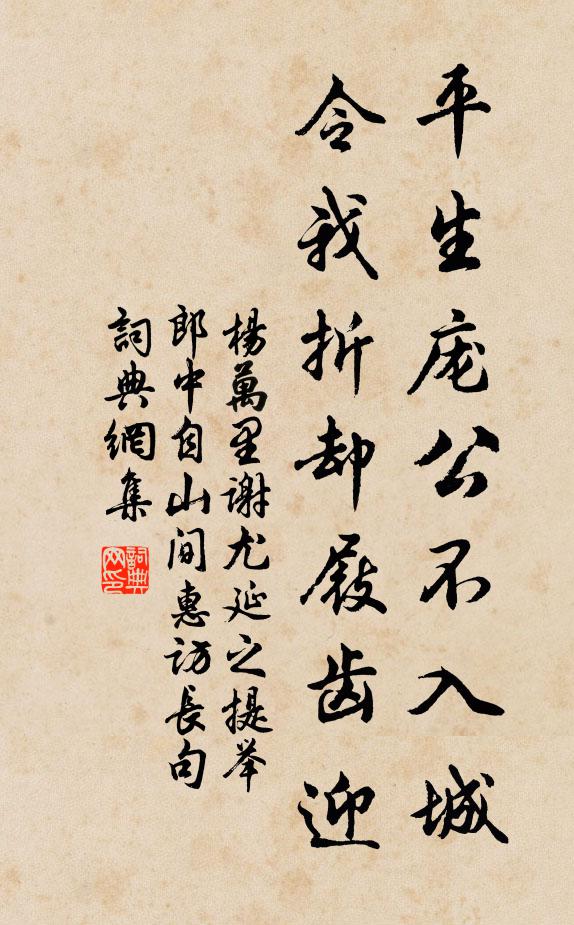 平生庞公不入城
令我折却屐齿迎
楊萬里谢尤延之提举
郎中自山间惠访長句
詞典網集
詞典网印